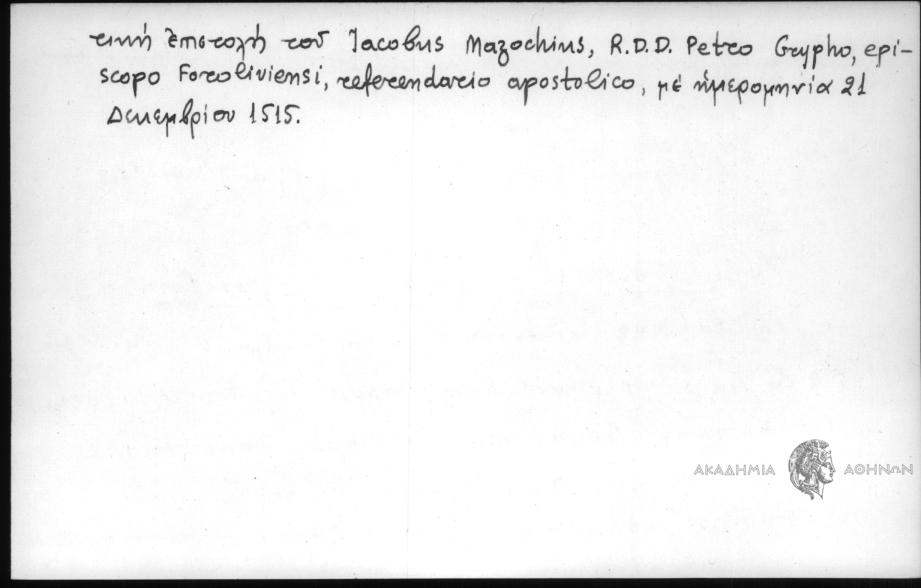 τική ἐπιστολή τοῦ Iacobus Mazochius, R.D.D. Petro Grypho, epi-
scopo Foroliviensi, referendario apostolico, μέ ἡμερομηνία 21
Δεκεμβρίου 1515.
ΑΚΑΔΗΜΙΑ ΑΘΗΝΩΝ